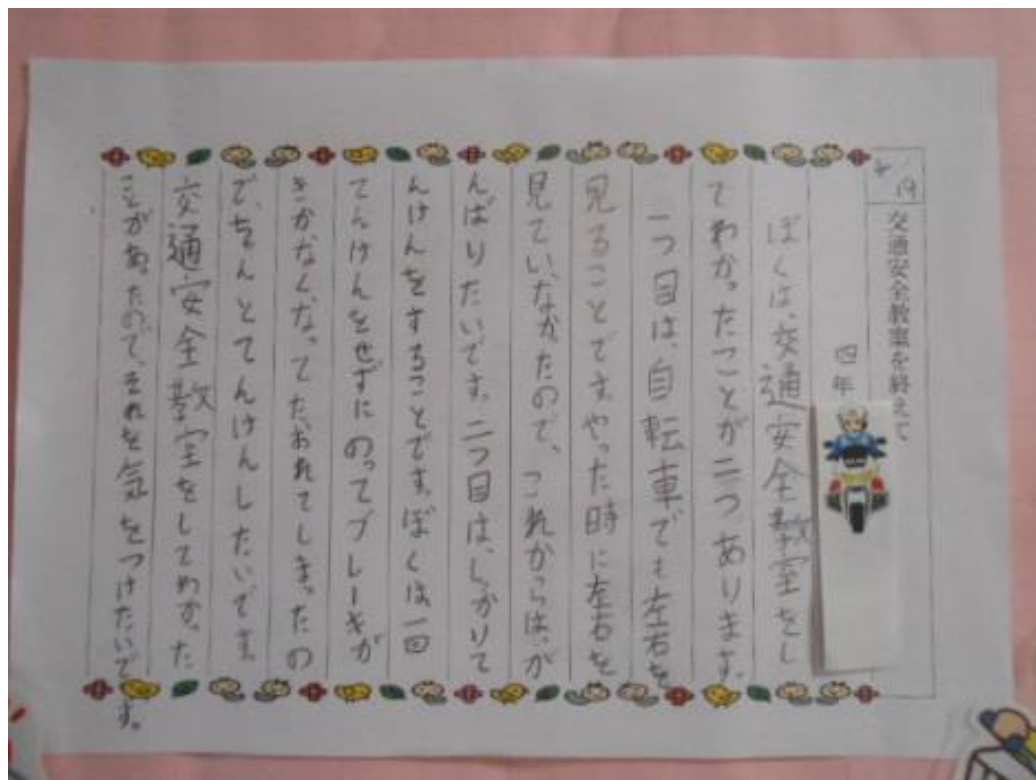 19
交通安全教室を終えて
四年
ぼくは、交通安全教室をし
てわかったことが二つあります。
一つ目は、自転車でも左右を
見ることです。やった時に左右を
見ていなかったので、これからは、が
んばりたいです。二つ目は、しかりて
んけんをすることです。ぼくは、一回
てんけんをせずにのってブレーキが
きかなくなってたおれてしまったの
で、ちゃんとてんけんしたいです。
交通安全教室をしてわかった
ことがあったので、それを気をつけたいで
す。